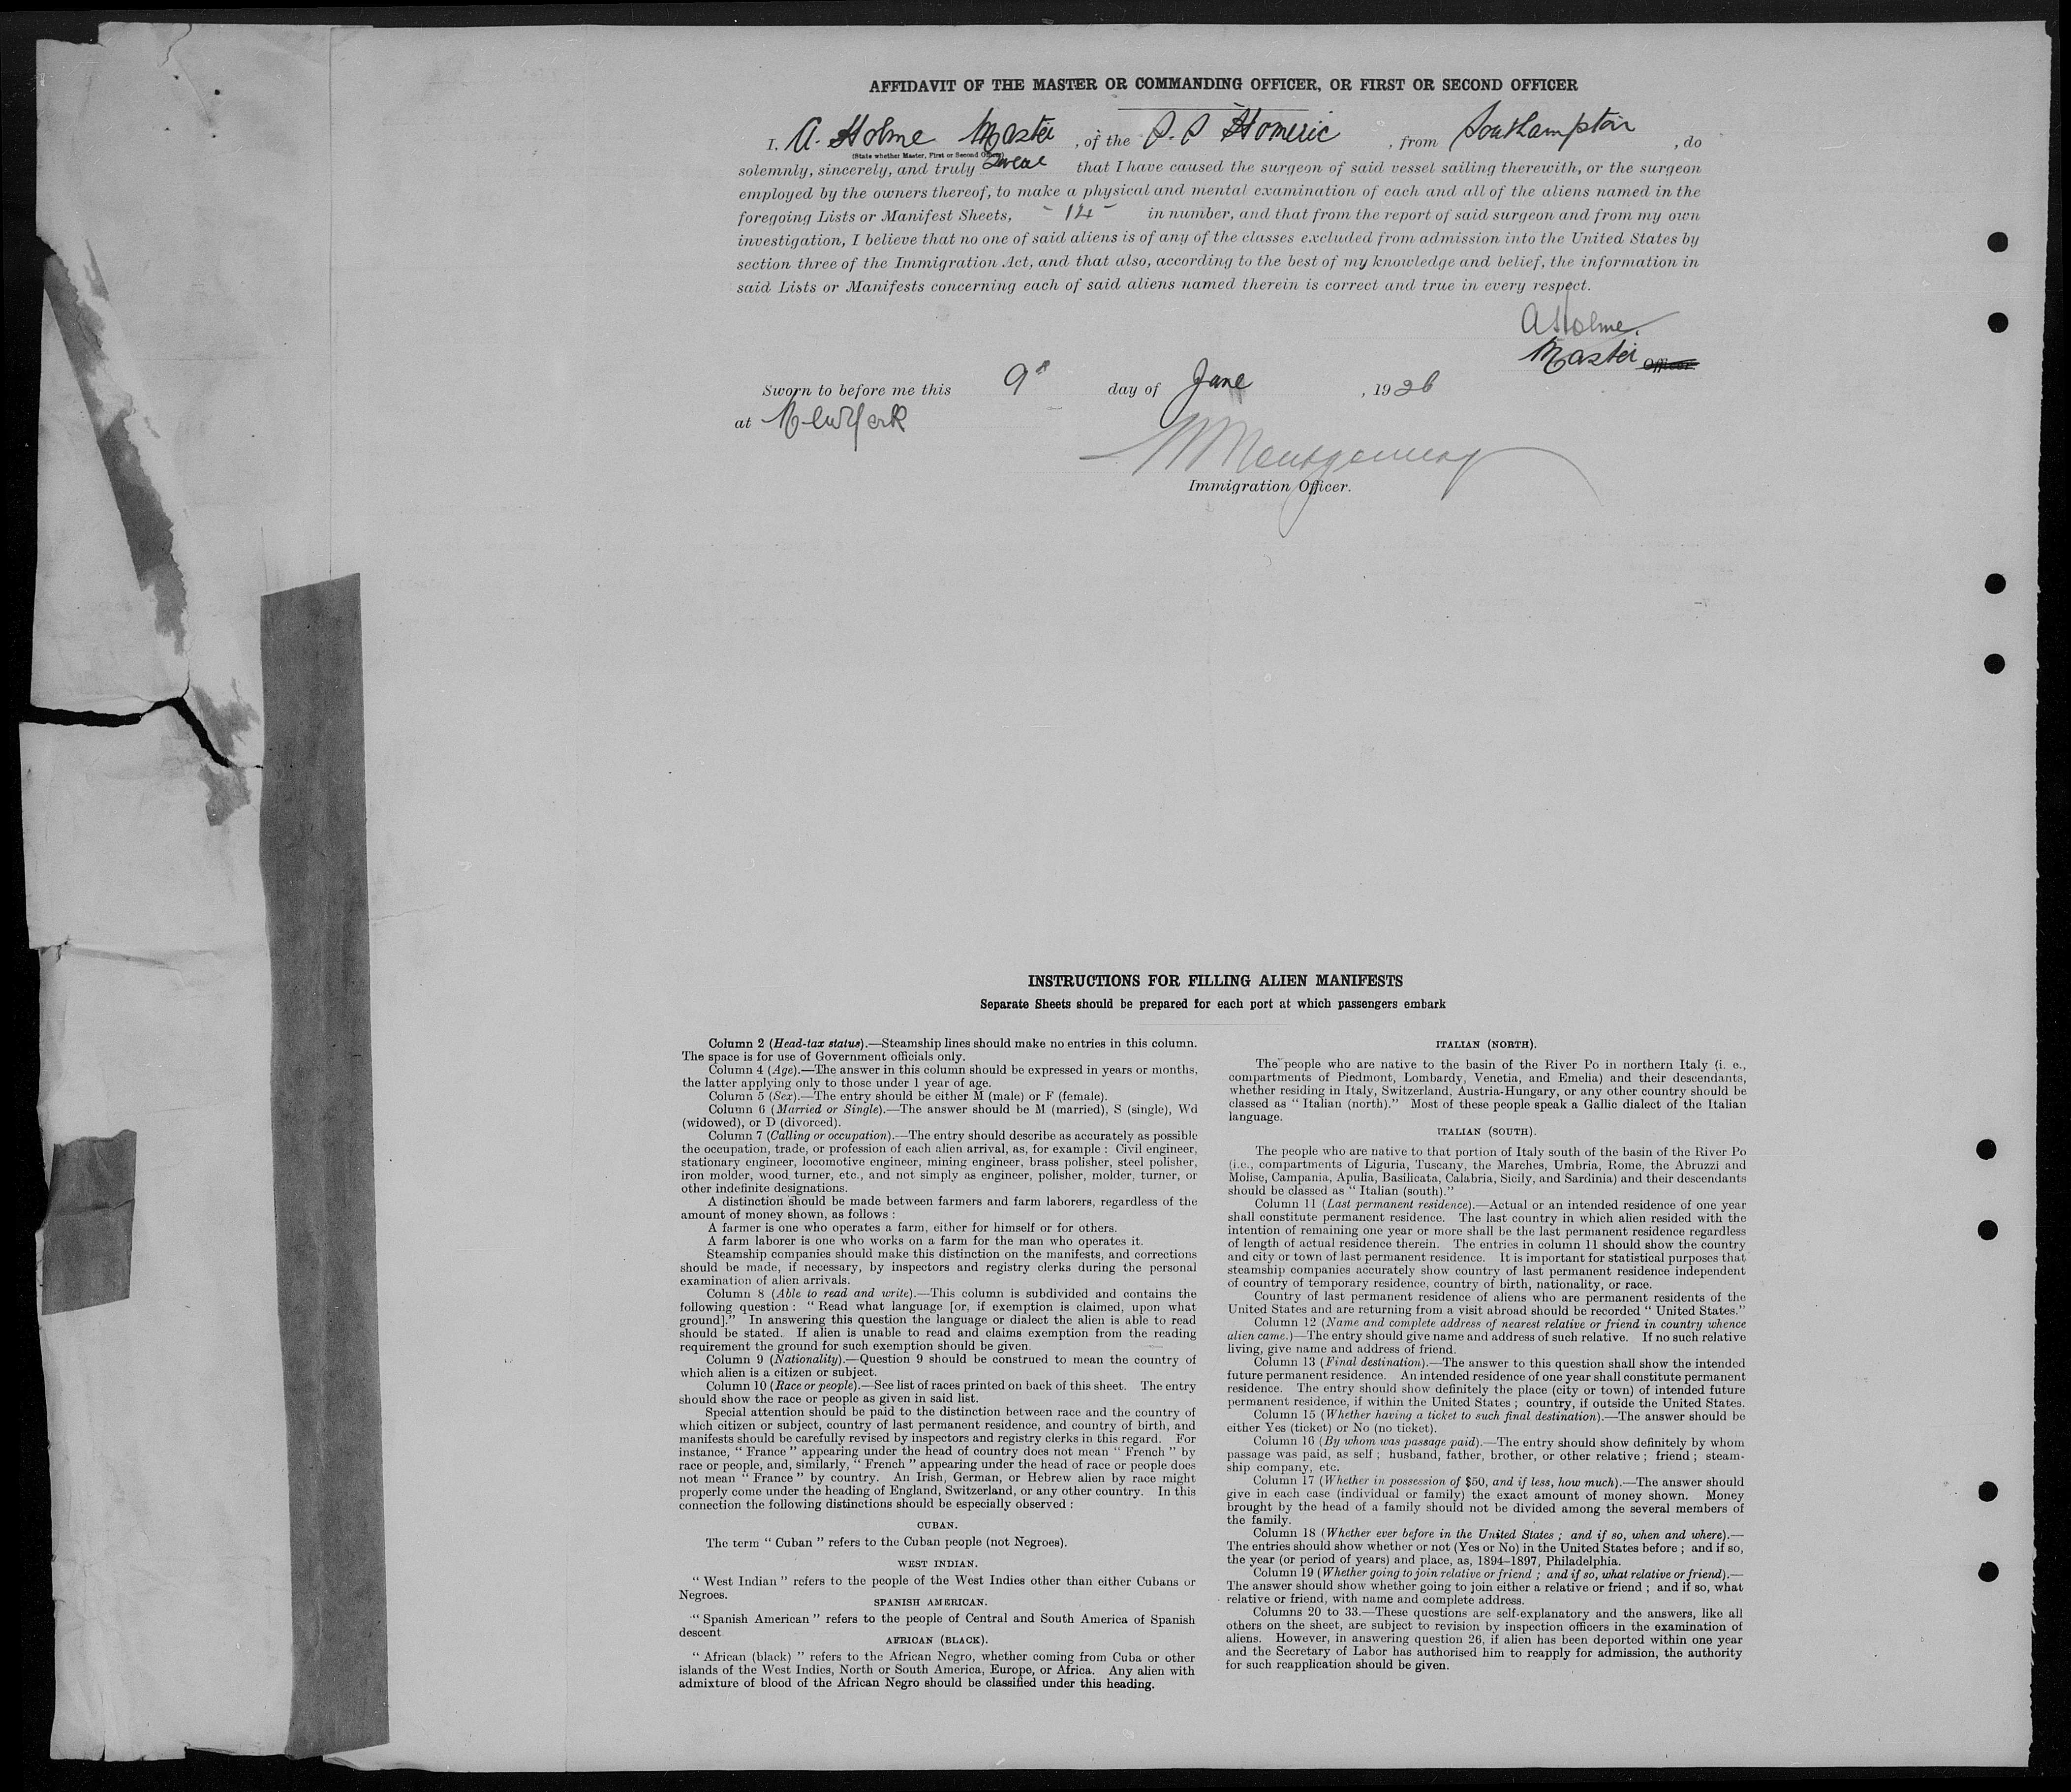 AFFIDAVIT OF THE MASTER OR COMMANDING OFFICER, OR FIRST OR SECOND OFFICER
I. A. Holme Master , of the S.S Homeric , from Southampton , do
(State whether Master, First or Second Officer)
solemnly, sincerely, and truly swear that I have caused the surgeon of said vessel sailing therewith, or the surgeon
employed by the owners thereof, to make a physical and mental examination of each and all of the aliens named in the
foregoing Lists or Manifest Sheets, - 14 - in number, and that from the report of said surgeon and from my own
investigation, I believe that no one of said aliens is of any of the classes excluded from admission into the United States by
section three of the Immigration Act, and that also, according to the best of my knowledge and belief, the information in
said Lists or Manifests concerning each of said aliens named therein is correct and true in every respect.
A Holme.
Master Officer
Sworn to before me this 9" day of June , 1926
at New York
Montgomery
Immigration Officer.
INSTRUCTIONS FOR FILLING ALIEN MANIFESTS
Separate Sheets should be prepared for each port at which passengers embark
Column 2 (Head-tax status).—Steamship lines should make no entries in this column.
The space is for use of Government officials only.
Column 4 (Age).—The answer in this column should be expressed in years or months,
the latter applying only to those under 1 year of age.
Column 5 (Sex).—The entry should be either M (male) or F (female).
Column 6 (Married or Single).—The answer should be M (married), S (single), Wd
(widowed), or D (divorced).
Column 7 (Calling or occupation).—The entry should describe as accurately as possible
the occupation, trade, or profession of each alien arrival, as, for example : Civil engineer,
stationary engineer, locomotive engineer, mining engineer, brass polisher, steel polisher,
iron molder, wood turner, etc., and not simply as engineer, polisher, molder, turner, or
other indefinite designations.
A distinction should be made between farmers and farm laborers, regardless of the
amount of money shown, as follows :
A farmer is one who operates a farm, either for himself or for others.
A farm laborer is one who works on a farm for the man who operates it.
Steamship companies should make this distinction on the manifests, and corrections
should be made, if necessary, by inspectors and registry clerks during the personal
examination of alien arrivals.
Column 8 (Able to read and write).—This column is subdivided and contains the
following question : " Read what language [or, if exemption is claimed, upon what
ground]." In answering this question the language or dialect the alien is able to read
should be stated. If alien is unable to read and claims exemption from the reading
requirement the ground for such exemption should be given.
Column 9 (Nationality).—Question 9 should be construed to mean the country of
which alien is a citizen or subject.
Column 10 (Race or people).—See list of races printed on back of this sheet. The entry
should show the race or people as given in said list.
Special attention should be paid to the distinction between race and the country of
which citizen or subject, country of last permanent residence, and country of birth, and
manifests should be carefully revised by inspectors and registry clerks in this regard. For
instance, " France " appearing under the head of country does not mean " French " by
race or people, and, similarly, " French " appearing under the head of race or people does
not mean " France " by country. An Irish, German, or Hebrew alien by race might
properly come under the heading of England, Switzerland, or any other country. In this
connection the following distinctions should be especially observed :
CUBAN.
The term " Cuban " refers to the Cuban people (not Negroes).
WEST INDIAN.
" West Indian " refers to the people of the West Indies other than either Cubans or
Negroes.
SPANISH AMERICAN.
" Spanish American " refers to the people of Central and South America of Spanish
descent
AFRICAN (BLACK).
" African (black) " refers to the African Negro, whether coming from Cuba or other
islands of the West Indies, North or South America, Europe, or Africa. Any alien with
admixture of blood of the African Negro should be classified under this heading.
ITALIAN (NORTH).
The people who are native to the basin of the River Po in northern Italy (i. e.,
compartments of Piedmont, Lombardy, Venetia, and Emelia) and their descendants,
whether residing in Italy, Switzerland, Austria-Hungary, or any other country should be
classed as " Italian (north)." Most of these people speak a Gallic dialect of the Italian
language.
ITALIAN (SOUTH).
The people who are native to that portion of Italy south of the basin of the River Po
(i.e., compartments of Liguria, Tuscany, the Marches, Umbria, Rome, the Abruzzi and
Molise, Campania, Apulia, Basilicata, Calabria, Sicily, and Sardinia) and their descendants
should be classed as " Italian (south)."
Column 11 (Last permanent residence).—Actual or an intended residence of one year
shall constitute permanent residence. The last country in which alien resided with the
intention of remaining one year or more shall be the last permanent residence regardless
of length of actual residence therein. The entries in column 11 should show the country
and city or town of last permanent residence. It is important for statistical purposes that
steamship companies accurately show country of last permanent residence independent
of country of temporary residence, country of birth, nationality, or race.
Country of last permanent residence of aliens who are permanent residents of the
United States and are returning from a visit abroad should be recorded " United States."
Column 12 (Name and complete address of nearest relative or friend in country whence
alien came.)—The entry should give name and address of such relative. If no such relative
living, give name and address of friend.
Column 13 (Final destination).—The answer to this question shall show the intended
future permanent residence. An intended residence of one year shall constitute permanent
residence. The entry should show definitely the place (city or town) of intended future
permanent residence, if within the United States ; country, if outside the United States.
Column 15 (Whether having a ticket to such final destination).—The answer should be
either Yes (ticket) or No (no ticket).
Column 16 (By whom was passage paid).—The entry should show definitely by whom
passage was paid, as self ; husband, father, brother, or other relative ; friend ; steam-
ship company, etc.
Column 17 (Whether in possession of $50, and if less, how much).—The answer should
give in each case (individual or family) the exact amount of money shown. Money
brought by the head of a family should not be divided among the several members of
the family.
Column 18 (Whether ever before in the United States ; and if so, when and where).—
The entries should show whether or not (Yes or No) in the United States before ; and if so,
the year (or period of years) and place, as, 1894–1897, Philadelphia.
Column 19 (Whether going to join relative or friend ; and if so, what relative or friend).—
The answer should show whether going to join either a relative or friend ; and if so, what
relative or friend, with name and complete address.
Columns 20 to 33.—These questions are self-explanatory and the answers, like all
others on the sheet, are subject to revision by inspection officers in the examination of
aliens. However, in answering question 26, if alien has been deported within one year
and the Secretary of Labor has authorised him to reapply for admission, the authority
for such reapplication should be given.